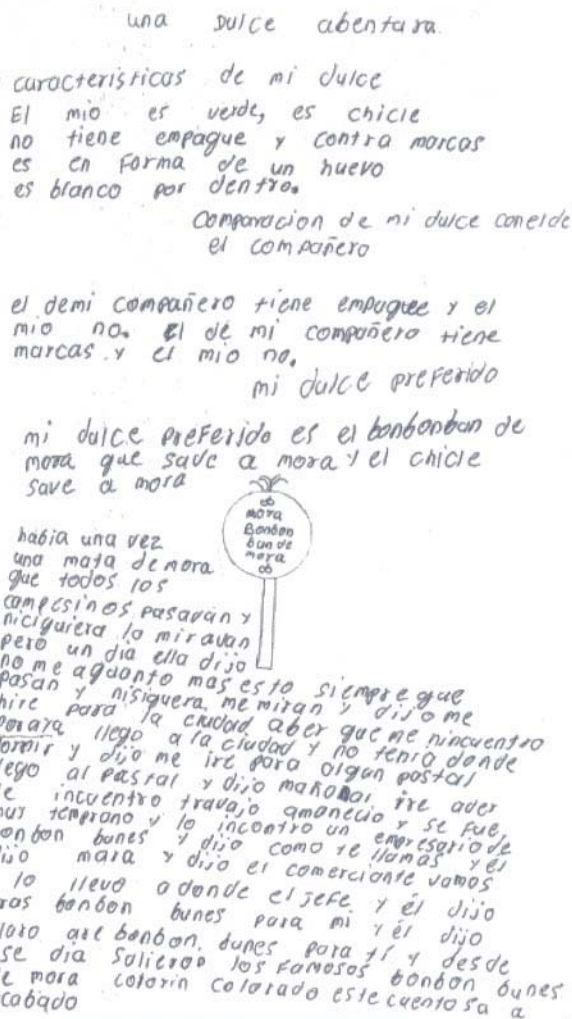 una dulce abentura
caracteristicas de mi dulce
El mio es verde, es chicle
no tiene empaque y contra marcas
es en forma de un huevo
es blanco por dentro.
Comparacion de mi dulce conelde
el compañero
el demi compañero tiene empaquee y el
mio no. El de mi compañero tiene
marcas y el mio no.
mi dulce preferido
mi dulce preferido es el bonbonban de
mora que save a mora y el chicle
save a mora
mora
Bonbon
bun de
mora
habia una vez
una mata demora
que todos los
campesinos pasavan y
niciquiera la miravan
pero un dia ella dijo
no me aguanto mas esto siempre que
pasan y nisiquera me miran y dijo me
hire para la ciudad aber que me nincuentro
porara llego a la ciudad y no tenia donde
dormir y dijo me ire para algun postal
llego al pastal y dijo mañanai ire aver
incuentro travajo amanecio y se fue
muy temprano y lo incontro un empresario de
bonbon bunes y dijo como te llamas y el
dijo mara y dijo el comerciante vamos
lo llevo adonde el jefe y el dijo
aras bonbon bunes para mi y el dijo
claro are bonbon bunes para ti y desde
ese dia salieron los famosos bonbon bunes
de mora colorin colorado este cuento sa a
cabado